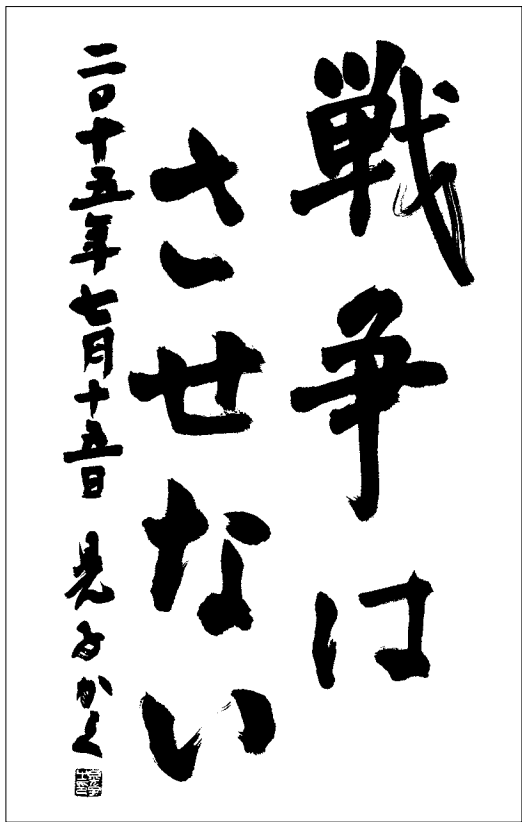 戦争は
させない
二〇十五年七月十五日 かく